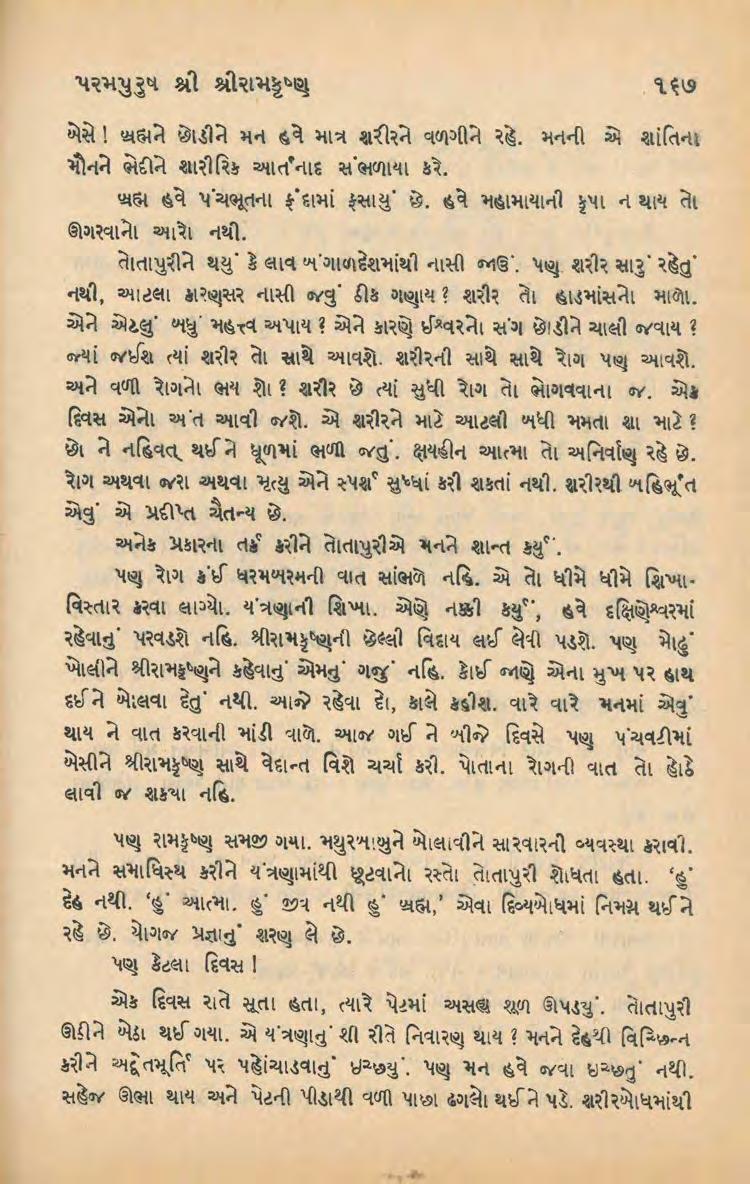 પરમપુરુષ શ્રી શ્રીરામકૃષ્ણ ૧૬૭
બેસે! બ્રહ્મને છોડીને મન હવે માત્ર શરીરને વળગીને રહે. મનની એ શાંતિના
મૌનને ભેદીને શારીરિક આર્તનાદ સંભળાયા કરે.
બ્રહ્મ હવે પંચભૂતના ફંદામાં ફસાયું છે. હવે મહામાયાની કૃપા ન થાય તો
ઊગરવાનો આરો નથી.
તોતાપુરીને થયું કે લાવ બંગાળદેશમાંથી નાસી જાઉં. પણ શરીર સારું રહેતું
નથી, આટલા કારણસર નાસી જવું ઠીક ગણાય? શરીર તો હાડમાંસનો માળો.
એને એટલું બધું મહત્ત્વ અપાય? એને કારણે ઈશ્વરનો સંગ છોડીને ચાલી જવાય?
જ્યાં જઈશ ત્યાં શરીર તો સાથે આવશે. શરીરની સાથે સાથે રોગ પણ આવશે.
અને વળી રોગનો ભય શો? શરીર છે ત્યાં સુધી રોગ તો ભોગવવાના જ. એક
દિવસ એનો અંત આવી જશે. એ શરીરને માટે આટલી બધી મમતા શા માટે?
છો ને નહિવત્ થઈને ધૂળમાં ભળી જતું. ક્ષયહીન આત્મા તો અનિર્વાણ રહે છે.
રોગ અથવા જરા અથવા મૃત્યુ એને સ્પર્શ સુધ્ધાં કરી શકતાં નથી. શરીરથી બહિર્ભૂત
એવું એ પ્રદીપ્ત ચૈતન્ય છે.
અનેક પ્રકારના તર્ક કરીને તોતાપુરીએ મનને શાન્ત કર્યું.
પણ રોગ કંઈ ધરમબરમની વાત સાંભળે નહિ. એ તો ધીમે ધીમે શિખા-
વિસ્તાર કરવા લાગ્યો. યંત્રણાની શિખા. એણે નક્કી કર્યું, હવે દક્ષિણેશ્વરમાં
રહેવાનું પરવડશે નહિ. શ્રીરામકૃષ્ણની છેલ્લી વિદાય લઈ લેવી પડશે. પણ મોઢું
ખોલીને શ્રીરામકૃષ્ણને કહેવાનું એમનું ગજું નહિ. કોઈ જાણે એના મુખ પર હાથ
દઈને બોલવા દેતું નથી. આજે રહેવા દો, કાલે કહીશ. વારે વારે મનમાં એવું
થાય ને વાત કરવાની માંડી વાળે. આજ ગઈ ને બીજે દિવસે પણ પંચવટીમાં
બેસીને શ્રીરામકૃષ્ણ સાથે વેદાન્ત વિશે ચર્ચા કરી. પોતાના રોગની વાત તો હોઠે
લાવી જ શક્યા નહિ.
પણ રામકૃષ્ણ સમજી ગયા. મથુરબાબુને બોલાવીને સારવારની વ્યવસ્થા કરાવી.
મનને સમાધિસ્થ કરીને યંત્રણામાંથી છૂટવાનો રસ્તો તોતાપુરી શોધતા હતા. ‘હું
દેહ નથી. ‘હું આત્મા. હું જીવ નથી હું બ્રહ્મ,’ એવા દિવ્યબોધમાં નિમગ્ન થઈને
રહે છે. યોગજ પ્રજ્ઞાનું શરણ લે છે.
પણ કેટલા દિવસ!
એક દિવસ રાતે સૂતા હતા, ત્યારે પેટમાં અસહ્ય શૂળ ઊપડયું. તોતાપુરી
ઊઠીને બેઠા થઈ ગયા. એ યંત્રણાનું શી રીતે નિવારણ થાય? મનને દેહથી વિચ્છિન્ન
કરીને અદ્વૈતમૂર્તિ પર પહોંચાડવાનું ઇચ્છ્યું. પણ મન હવે જવા ઇચ્છતું નથી.
સહેજ ઊભા થાય અને પેટની પીડાથી વળી પાછા ઢગલો થઈને પડે. શરીરબોધમાંથી